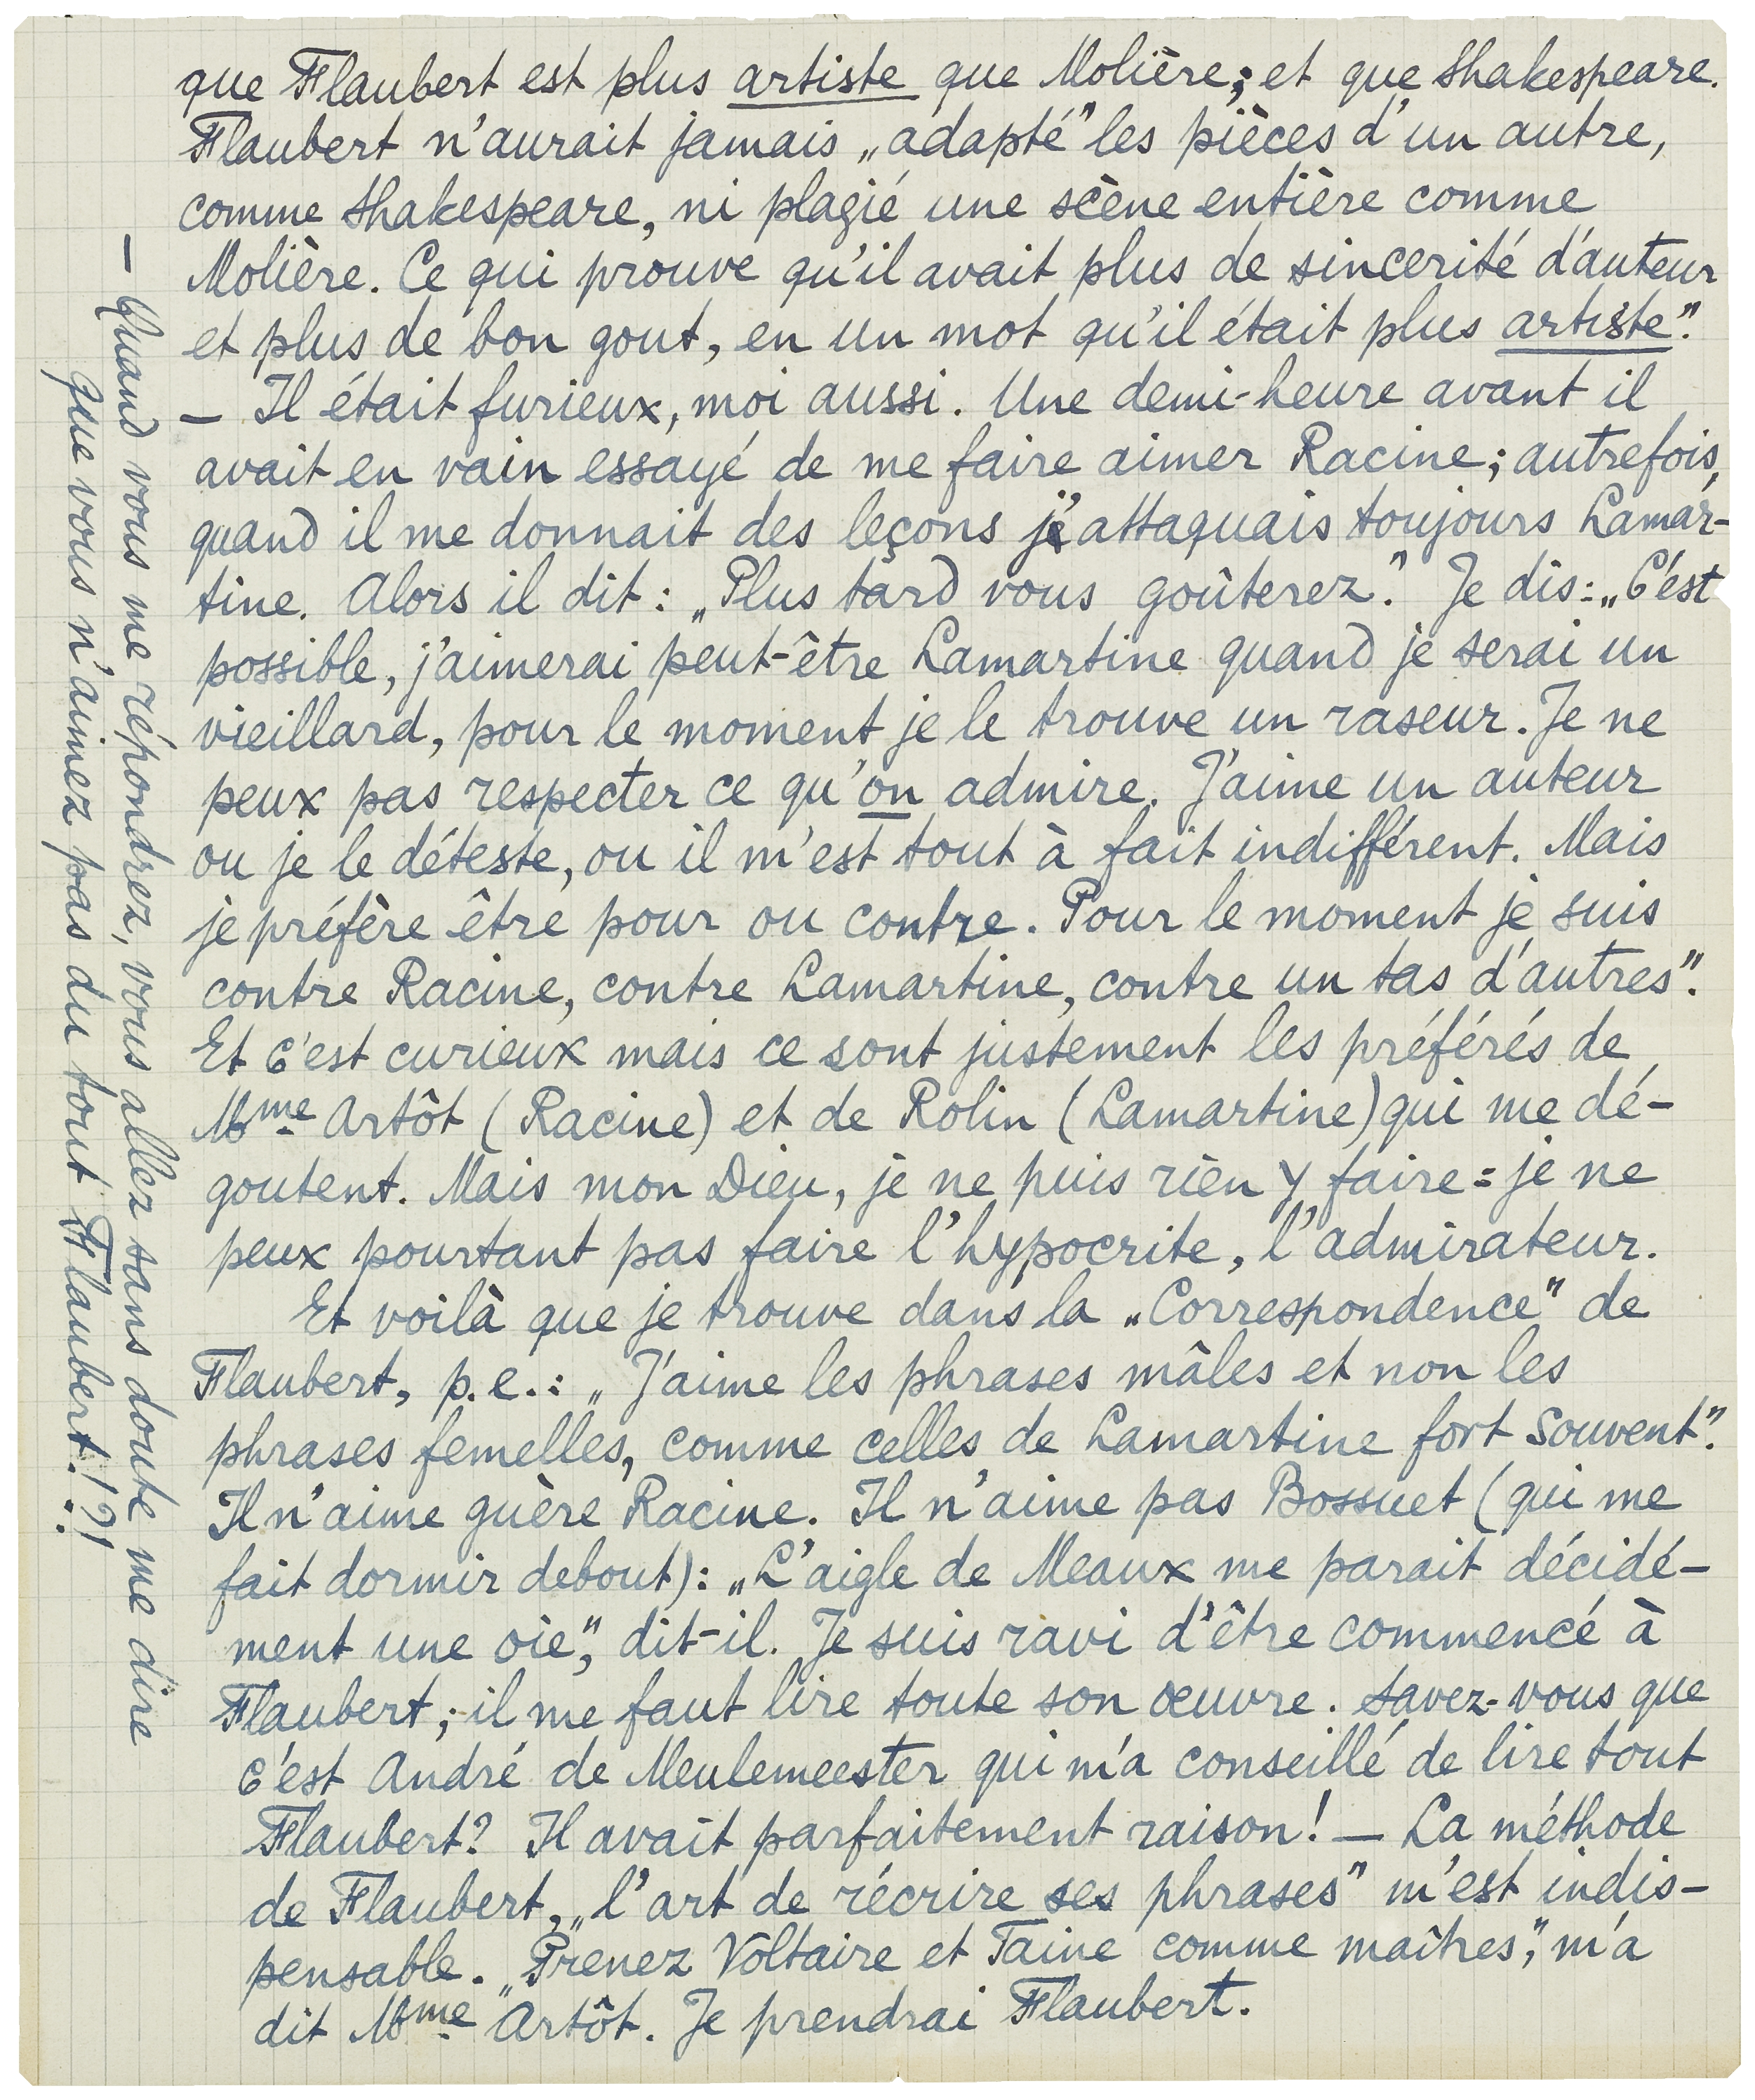 que Flaubert est plus artiste que Molière; et que Shakespeare.
Flaubert n'aurait jamais „adapté" les pièces d'un autre,
comme Shakespeare, ni plagié une scène entière comme
Molière. Ce qui prouve qu'il avait plus de sincerité d'auteur
et plus de bon gout, en un mot qu'il était plus artiste".
— Il était furieux, moi aussi. Une demi-heure avant il
avait en vain essayé de me faire aimer Racine; autrefois,
quand il me donnait des leçons j'attaquais toujours Lamar-
tine. Alors il dit: „Plus tard vous goûterez". Je dis: „C'est
possible, j'aimerai peut-être Lamartine quand je serai un
vieillard, pour le moment je le trouve un raseur. Je ne
peux pas respecter ce qu'on admire. J'aime un auteur
ou je le déteste, ou il m'est tout à fait indifférent. Mais
je préfère être pour ou contre. Pour le moment je suis
contre Racine, contre Lamartine, contre un tas d'autres".
Et c'est curieux mais ce sont justement les préférés de
Mme Artôt (Racine) et de Rolin (Lamartine) qui me dé-
goutent. Mais mon Dieu, je ne puis rien y faire: je ne
peux pourtant pas faire l'hypocrite, l'admirateur.
Et voilà que je trouve dans la „Correspondence" de
Flaubert, p.e.: „J'aime les phrases mâles et non les
phrases femelles, comme celles de Lamartine fort souvent".
Il n'aime guère Racine. Il n'aime pas Bossuet (qui me
fait dormir debout): „L'aigle de Meaux me parait décidé-
ment une oie", dit-il. Je suis ravi d'être commencé à
Flaubert; il me faut lire toute son œuvre. Savez-vous que
c'est André de Meulemeester qui m'a conseillé de lire tout
Flaubert? Il avait parfaitement raison! — La méthode
de Flaubert, „l'art de récrire ses phrases" m'est indis-
pensable. „Prenez Voltaire et Taine comme maîtres", m'a
dit Mme Artôt. Je prendrai Flaubert.
— Quand vous me répondrez, vous allez sans doute me dire
que vous n'aimez pas du tout Flaubert!?!